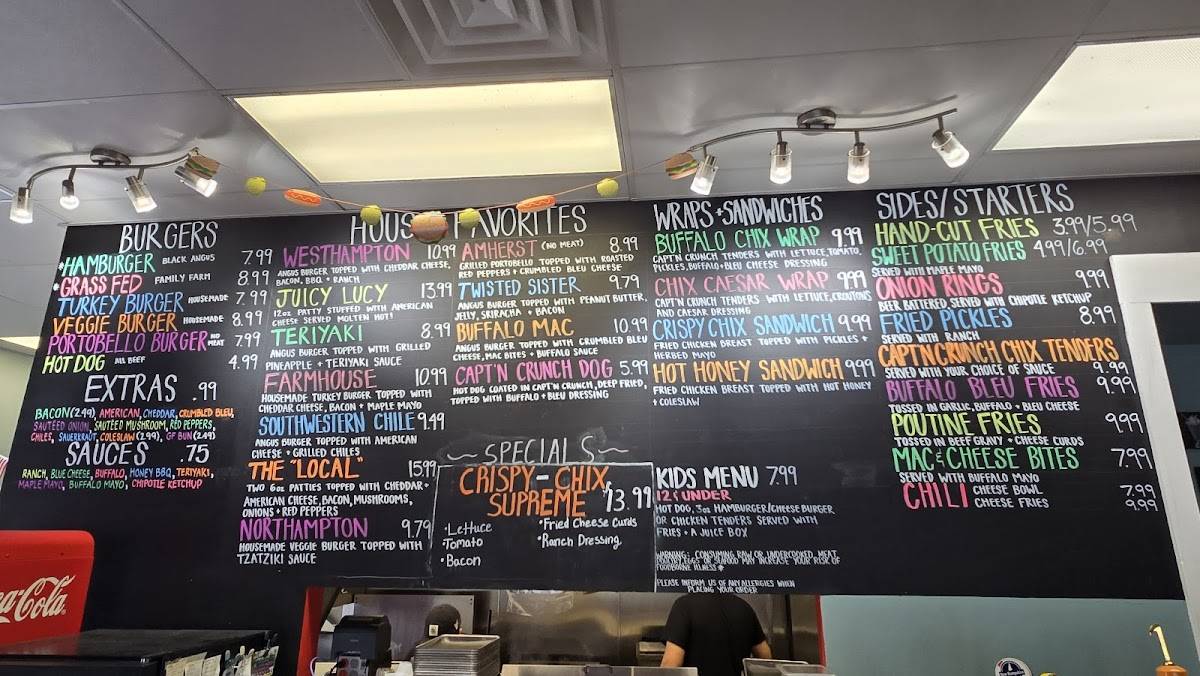 BURGERS
*HAMBURGER BLACK ANGUS 7.99
*GRASS FED FAMILY FARM 8.99
TURKEY BURGER HOUSEMADE 7.99
VEGGIE BURGER HOUSEMADE 8.99
PORTOBELLO BURGER NO MEAT 7.99
HOT DOG ALL BEEF 4.99
EXTRAS .99
BACON(2.49), AMERICAN, CHEDDAR, CRUMBLED BLEU,
SAUTEED ONION, SAUTEED MUSHROOM, RED PEPPERS,
CHILES, SAUERKRAUT, COLESLAW(2.99), GF BUN(2.49)
SAUCES .75
RANCH, BLUE CHEESE, BUFFALO, HONEY BBQ, TERIYAKI,
MAPLE MAYO, BUFFALO MAYO, CHIPOTLE KETCHUP
HOUSE FAVORITES
WESTHAMPTON 10.99
ANGUS BURGER TOPPED WITH CHEDDAR CHEESE,
BACON, BBQ + RANCH
JUICY LUCY 13.99
12oz PATTY STUFFED WITH AMERICAN
CHEESE SERVED MOLTEN HOT!
TERIYAKI 8.99
ANGUS BURGER TOPPED WITH GRILLED
PINEAPPLE + TERIYAKI SAUCE
FARMHOUSE 10.99
HOUSEMADE TURKEY BURGER TOPPED WITH
CHEDDAR CHEESE, BACON + MAPLE MAYO
SOUTHWESTERN CHILE 9.49
ANGUS BURGER TOPPED WITH AMERICAN
CHEESE + GRILLED CHILES
THE "LOCAL" 15.99
TWO 6oz PATTIES TOPPED WITH CHEDDAR +
AMERICAN CHEESE, BACON, MUSHROOMS,
ONIONS + RED PEPPERS
NORTHAMPTON 9.79
HOUSEMADE VEGGIE BURGER TOPPED WITH
TZATZIKI SAUCE
AMHERST (NO MEAT) 8.99
GRILLED PORTOBELLO TOPPED WITH ROASTED
RED PEPPERS + CRUMBLED BLEU CHEESE
TWISTED SISTER 9.79
ANGUS BURGER TOPPED WITH PEANUT BUTTER,
JELLY, SRIRACHA + BACON
BUFFALO MAC 10.99
ANGUS BURGER TOPPED WITH CRUMBLED BLEU
CHEESE, MAC BITES + BUFFALO SAUCE
CAPT'N CRUNCH DOG 5.99
HOT DOG COATED IN CAPT'N CRUNCH, DEEP FRIED,
TOPPED WITH BUFFALO + BLEU DRESSING
~SPECIALS~
CRISPY-CHIX
SUPREME 13.99
•Lettuce
•Tomato
•Bacon
•Fried Cheese Curds
•Ranch Dressing
WRAPS+SANDWICHES
BUFFALO CHIX WRAP 9.99
CAPT'N CRUNCH TENDERS WITH LETTUCE, TOMATO,
PICKLES, BUFFALO+BLEU CHEESE DRESSING
CHIX CAESAR WRAP 9.99
CAPT'N CRUNCH TENDERS WITH LETTUCE, CROUTONS
AND CAESAR DRESSING
CRISPY CHIX SANDWICH 9.99
FRIED CHICKEN BREAST TOPPED WITH PICKLES +
HERBED MAYO
HOT HONEY SANDWICH 9.99
FRIED CHICKEN BREAST TOPPED WITH HOT HONEY
+ COLESLAW
KIDS MENU 7.99
12 & UNDER
HOT DOG, 3oz HAMBURGER/CHEESE BURGER
OR CHICKEN TENDERS SERVED WITH
FRIES + A JUICE BOX
WARNING: CONSUMING RAW OR UNDERCOOKED MEAT,
POULTRY, EGGS OR SEAFOOD MAY INCREASE YOUR RISK OF
FOODBORNE ILLNESS *
PLEASE INFORM US OF ANY ALLERGIES WHEN
PLACING YOUR ORDER
SIDES/STARTERS
HAND-CUT FRIES 3.99/5.99
SWEET POTATO FRIES 4.99/6.99
SERVED WITH MAPLE MAYO
ONION RINGS 9.99
BEER BATTERED, SERVED WITH CHIPOTLE KETCHUP
FRIED PICKLES 8.99
SERVED WITH RANCH
CAPT'N CRUNCH CHIX TENDERS
SERVED WITH YOUR CHOICE OF SAUCE 9.99
BUFFALO BLEU FRIES 9.99
TOSSED IN GARLIC, BUFFALO + BLEU CHEESE
POUTINE FRIES 9.99
TOSSED IN BEEF GRAVY + CHEESE CURDS
MAC & CHEESE BITES 7.99
SERVED WITH BUFFALO MAYO
CHILI CHEESE BOWL 7.99
CHEESE FRIES 9.99
Coca-Cola